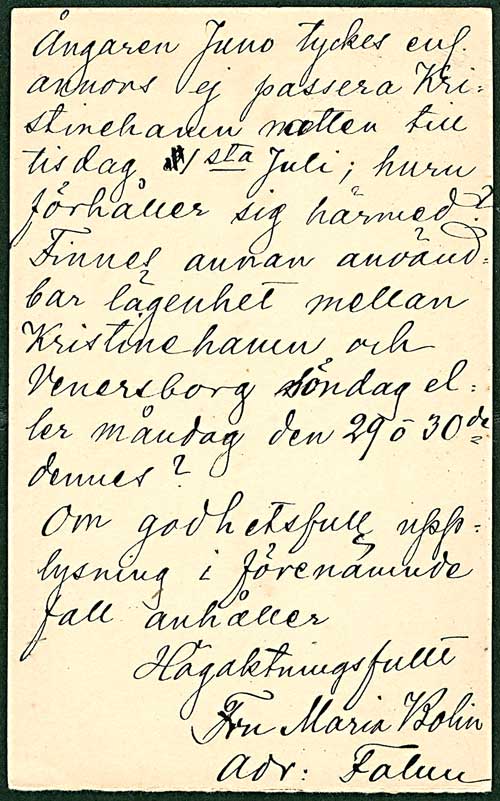 Ångaren Juno tyckes enl.
annons ej passera Kri-
stinehamn natten till
tisdag 1sta Juli; huru
förhåller sig härmed?
Finnes annan använd-
bar lägenhet mellan
Kristinehamn och
Venersborg söndag el-
ler måndag den 29 o 30de
dennes?
Om godhetsfull upp-
lysning i förenämnde
fall anhåller
Högaktningsfullt
Fru Maria Bolin
Adr: Falun